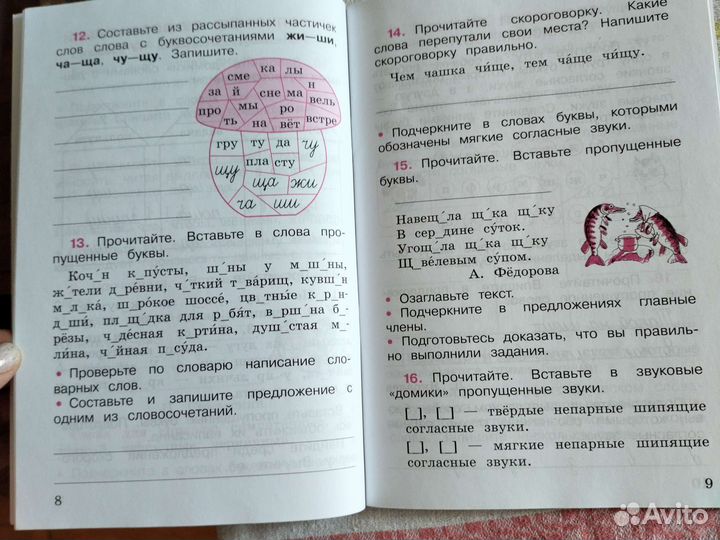 12. Составьте из рассыпанных частичек
слов слова с буквосочетаниями жи—ши,
ча—ща, чу—щу. Запишите.
сме ка лы
за й сне ма н
про мы ро вель
ть на вёт встре
гру ту да чу
щу пла сту
ща жи
ча ши
13. Прочитайте. Вставьте в слова про-
пущенные буквы.
Коч_н к_пу́сты, ш_́ны у м_ш_́ны,
ж_́тели д_ре́вни, ч_́ткий т_ва́рищ, кувш_́н
м_л_ка́, ш_ро́кое шоссе́, цв_тны́е к_р_н-
д_ши́, пл_щ_́дка для р_бя́т, в_рш_́на б_-
рёзы, ч_де́сная к_рти́на, душ_́стая м_-
ли́на, ч_́йная п_су́да.
• Проверьте по словарю написание сло-
варных слов.
• Составьте и запишите предложение с
одним из словосочетаний.
8
14. Прочитайте скороговорку. Какие
слова перепутали свои места? Напишите
скороговорку правильно.
Чем чашка чи́ще, тем ча́ще чи́щу.
• Подчеркните в словах буквы, которыми
обозначены мягкие согласные звуки.
15. Прочитайте. Вставьте пропущенные
буквы.
Навещ_́ла щ_́ка щ_́ку
В сер_дине су́ток.
Угощ_́ла щ_́ка щ_́ку
Щ_ве́левым су́пом.
А. Фёдорова
• Озаглавьте текст.
• Подчеркните в предложениях главные
члены.
• Подготовьтесь доказать, что вы правиль-
но выполнили задания.
16. Прочитайте. Вставьте в звуковые
«домики» пропущенные звуки.
[_], [_] — твёрдые непарные шипящие
согласные звуки.
[_], [_] — мягкие непарные шипящие
согласные звуки.
9
Avito